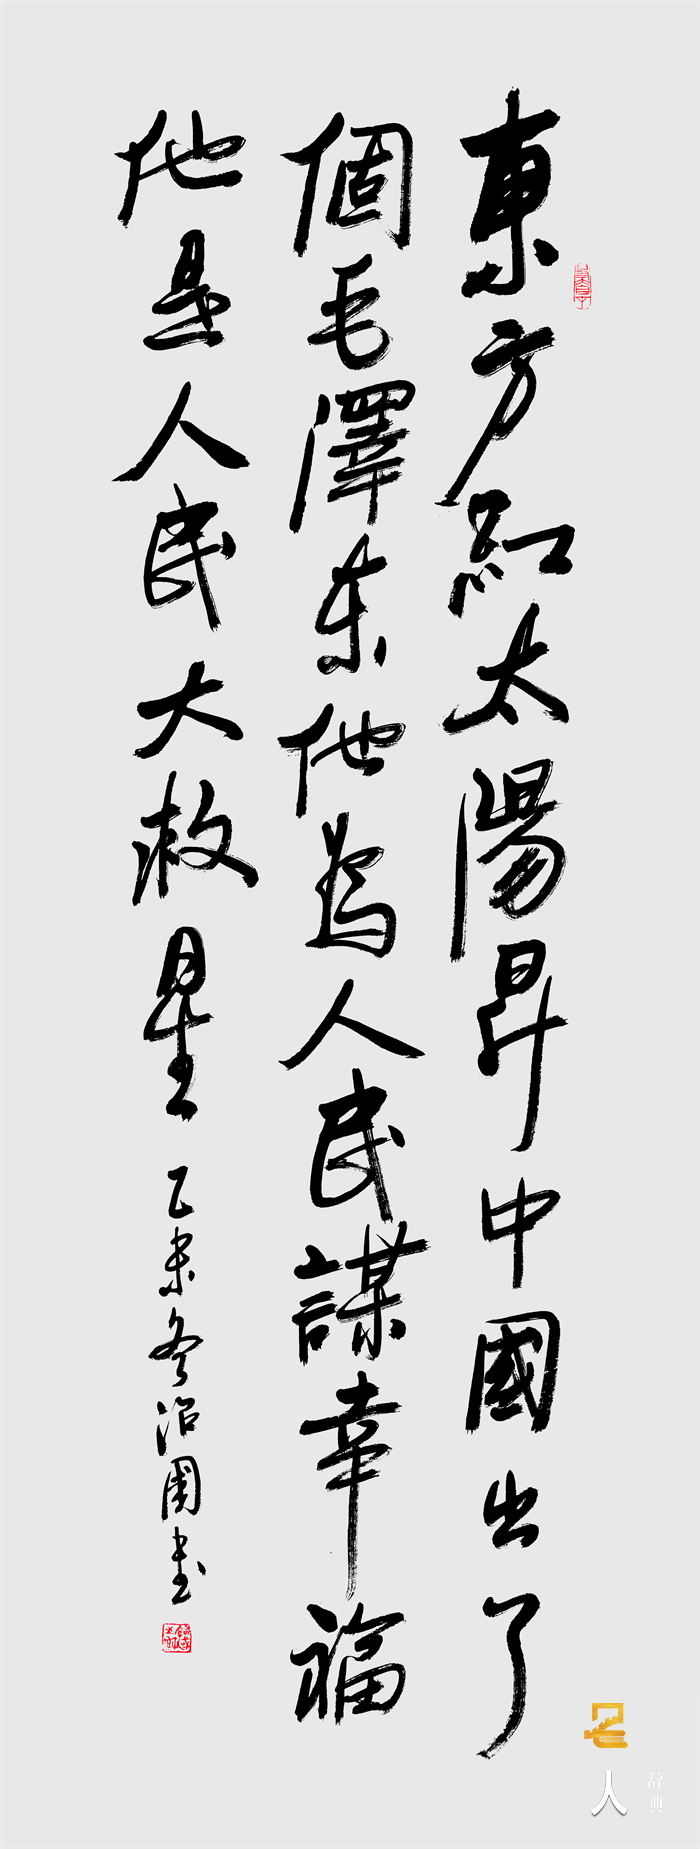 東方紅太陽昇中國出了
個毛澤东他為人民謀幸福
他是人民大救星
乙未冬治國书
名人
辞典